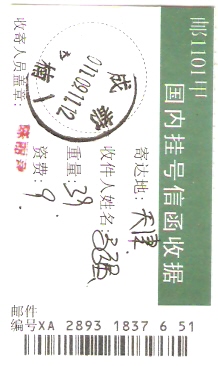 邮1101甲
国内挂号信函收据
寄达地：天津
收件人姓名：
重量：39
资费：9.
收寄人员盖章：
成都
邮件
编号XA 2893 1837 6 51